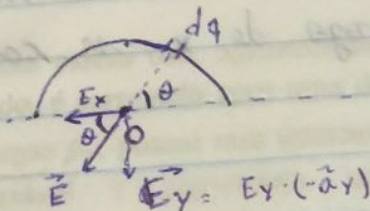 dq
θ
Ex
θ
O
E⃗
E⃗y = Ey·(-a⃗y)